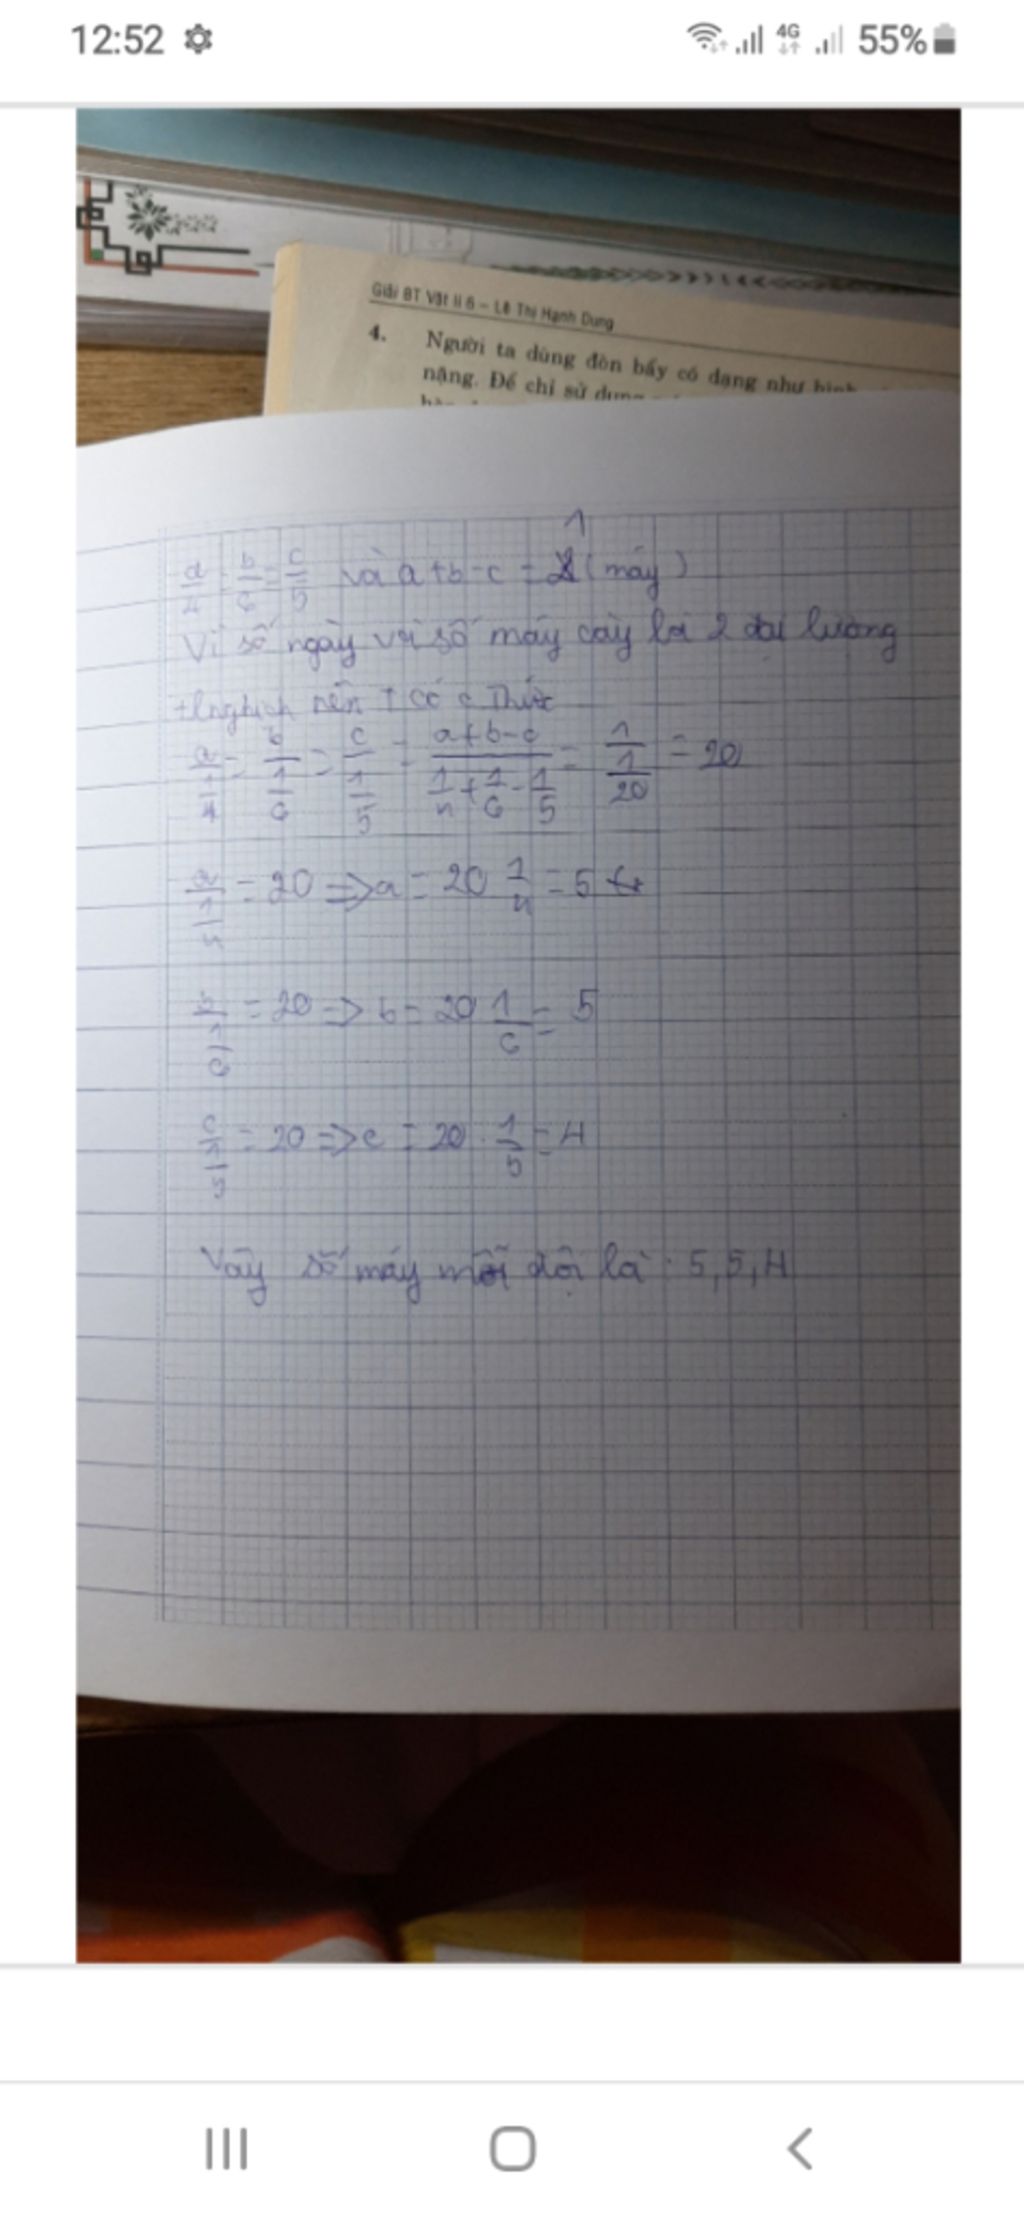 12:52 4G 55%
Giải BT Vật lí 6 – Lê Thị Hạnh Dung
4. Người ta dùng đòn bẩy có dạng như hình
nặng. Để chỉ sử dụng
a/4 = b/6 = c/5 và a+b-c = 1 (máy)
Vì số ngày và số máy cày là 2 đại lượng
nghịch nên T có
a/(1/4) = b/(1/6) = c/(1/5) = (a+b-c)/(1/4+1/6-1/5) = 1/(1/20) = 20
a/(1/4) = 20 => a = 20 1/4 = 5
b/(1/6) = 20 => b = 20 1/6 = 5
c/(1/5) = 20 => c = 20 . 1/5 = 4
Vậy số máy mỗi đội là : 5, 5, 4